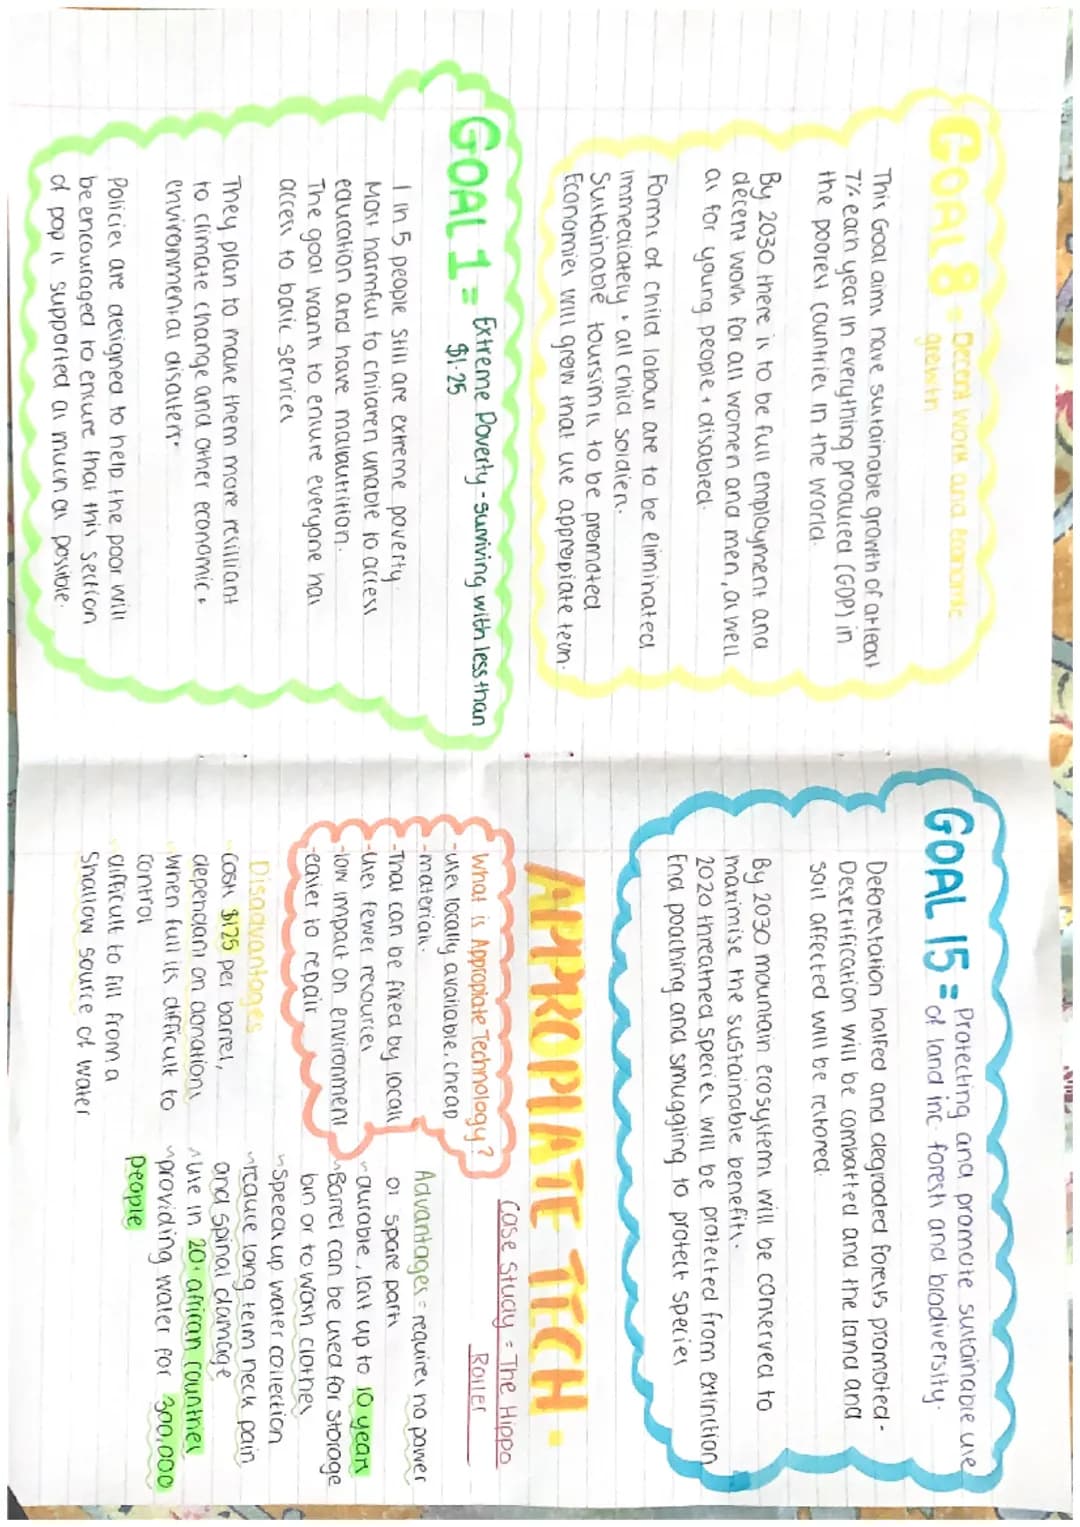 GOAL 8 = Decent Work and Economic
growth
This Goal aims have sustainable growth of atleast
7% each year in everything produced (GDP) in
the poorest countries in the world.
By 2030 there is to be full employment and
decent work for all women and men, as well
as for young people + disabled.
Forms of child labour are to be eliminated
immediately + all child soldiers.
Sustainable toursim is to be promoted
Economies will grow that use appropiate tech.
GOAL 1 = Extreme Poverty - surviving with less than
$1.25
1 in 5 people still are extreme poverty.
Most harmful to children unable to access
education and have malnutrition.
The goal wants to ensure everyone has
access to basic services
They plan to make them more resilliant
to climate change and other economic +
environmental disaters.
Policies are designed to help the poor will
be encouraged to ensure that this section
of pop is supported as much as possible.
GOAL 15 = Protecting and promote sustainable use
of land inc forests and biodiversity.
Deforestation halted and degraded forests promoted -
Desertification will be combatted and the land and
soil affected will be restored.
By 2030 mountain ecosystems will be conserved to
maximise the sustainable benefits.
2020 threatned species will be protected from extinction
End poaching and smuggling to protect species
APPROPIATE TECH.
What is Appropiate Technology?
-uses locally available, cheap
-materials.
-That can be fixed by locals
-uses fewer resources
-low impact on environment
-easier to repair
Disadvantages
- Costs $125 per barrel,
dependant on donations
- When full is difficult to
control
- difficult to fill from a
shallow source of water
Case Study = The Hippo
Roller
Advantages = requires no power
or spare parts
~durable, last up to 10 years
~Barrel can be used for storage
bin or to wash clothes
~Speeds up water collection
~reduce long term neck pain
and spinal damage
~use in 20+ african countries
~providing water for 300,000
people